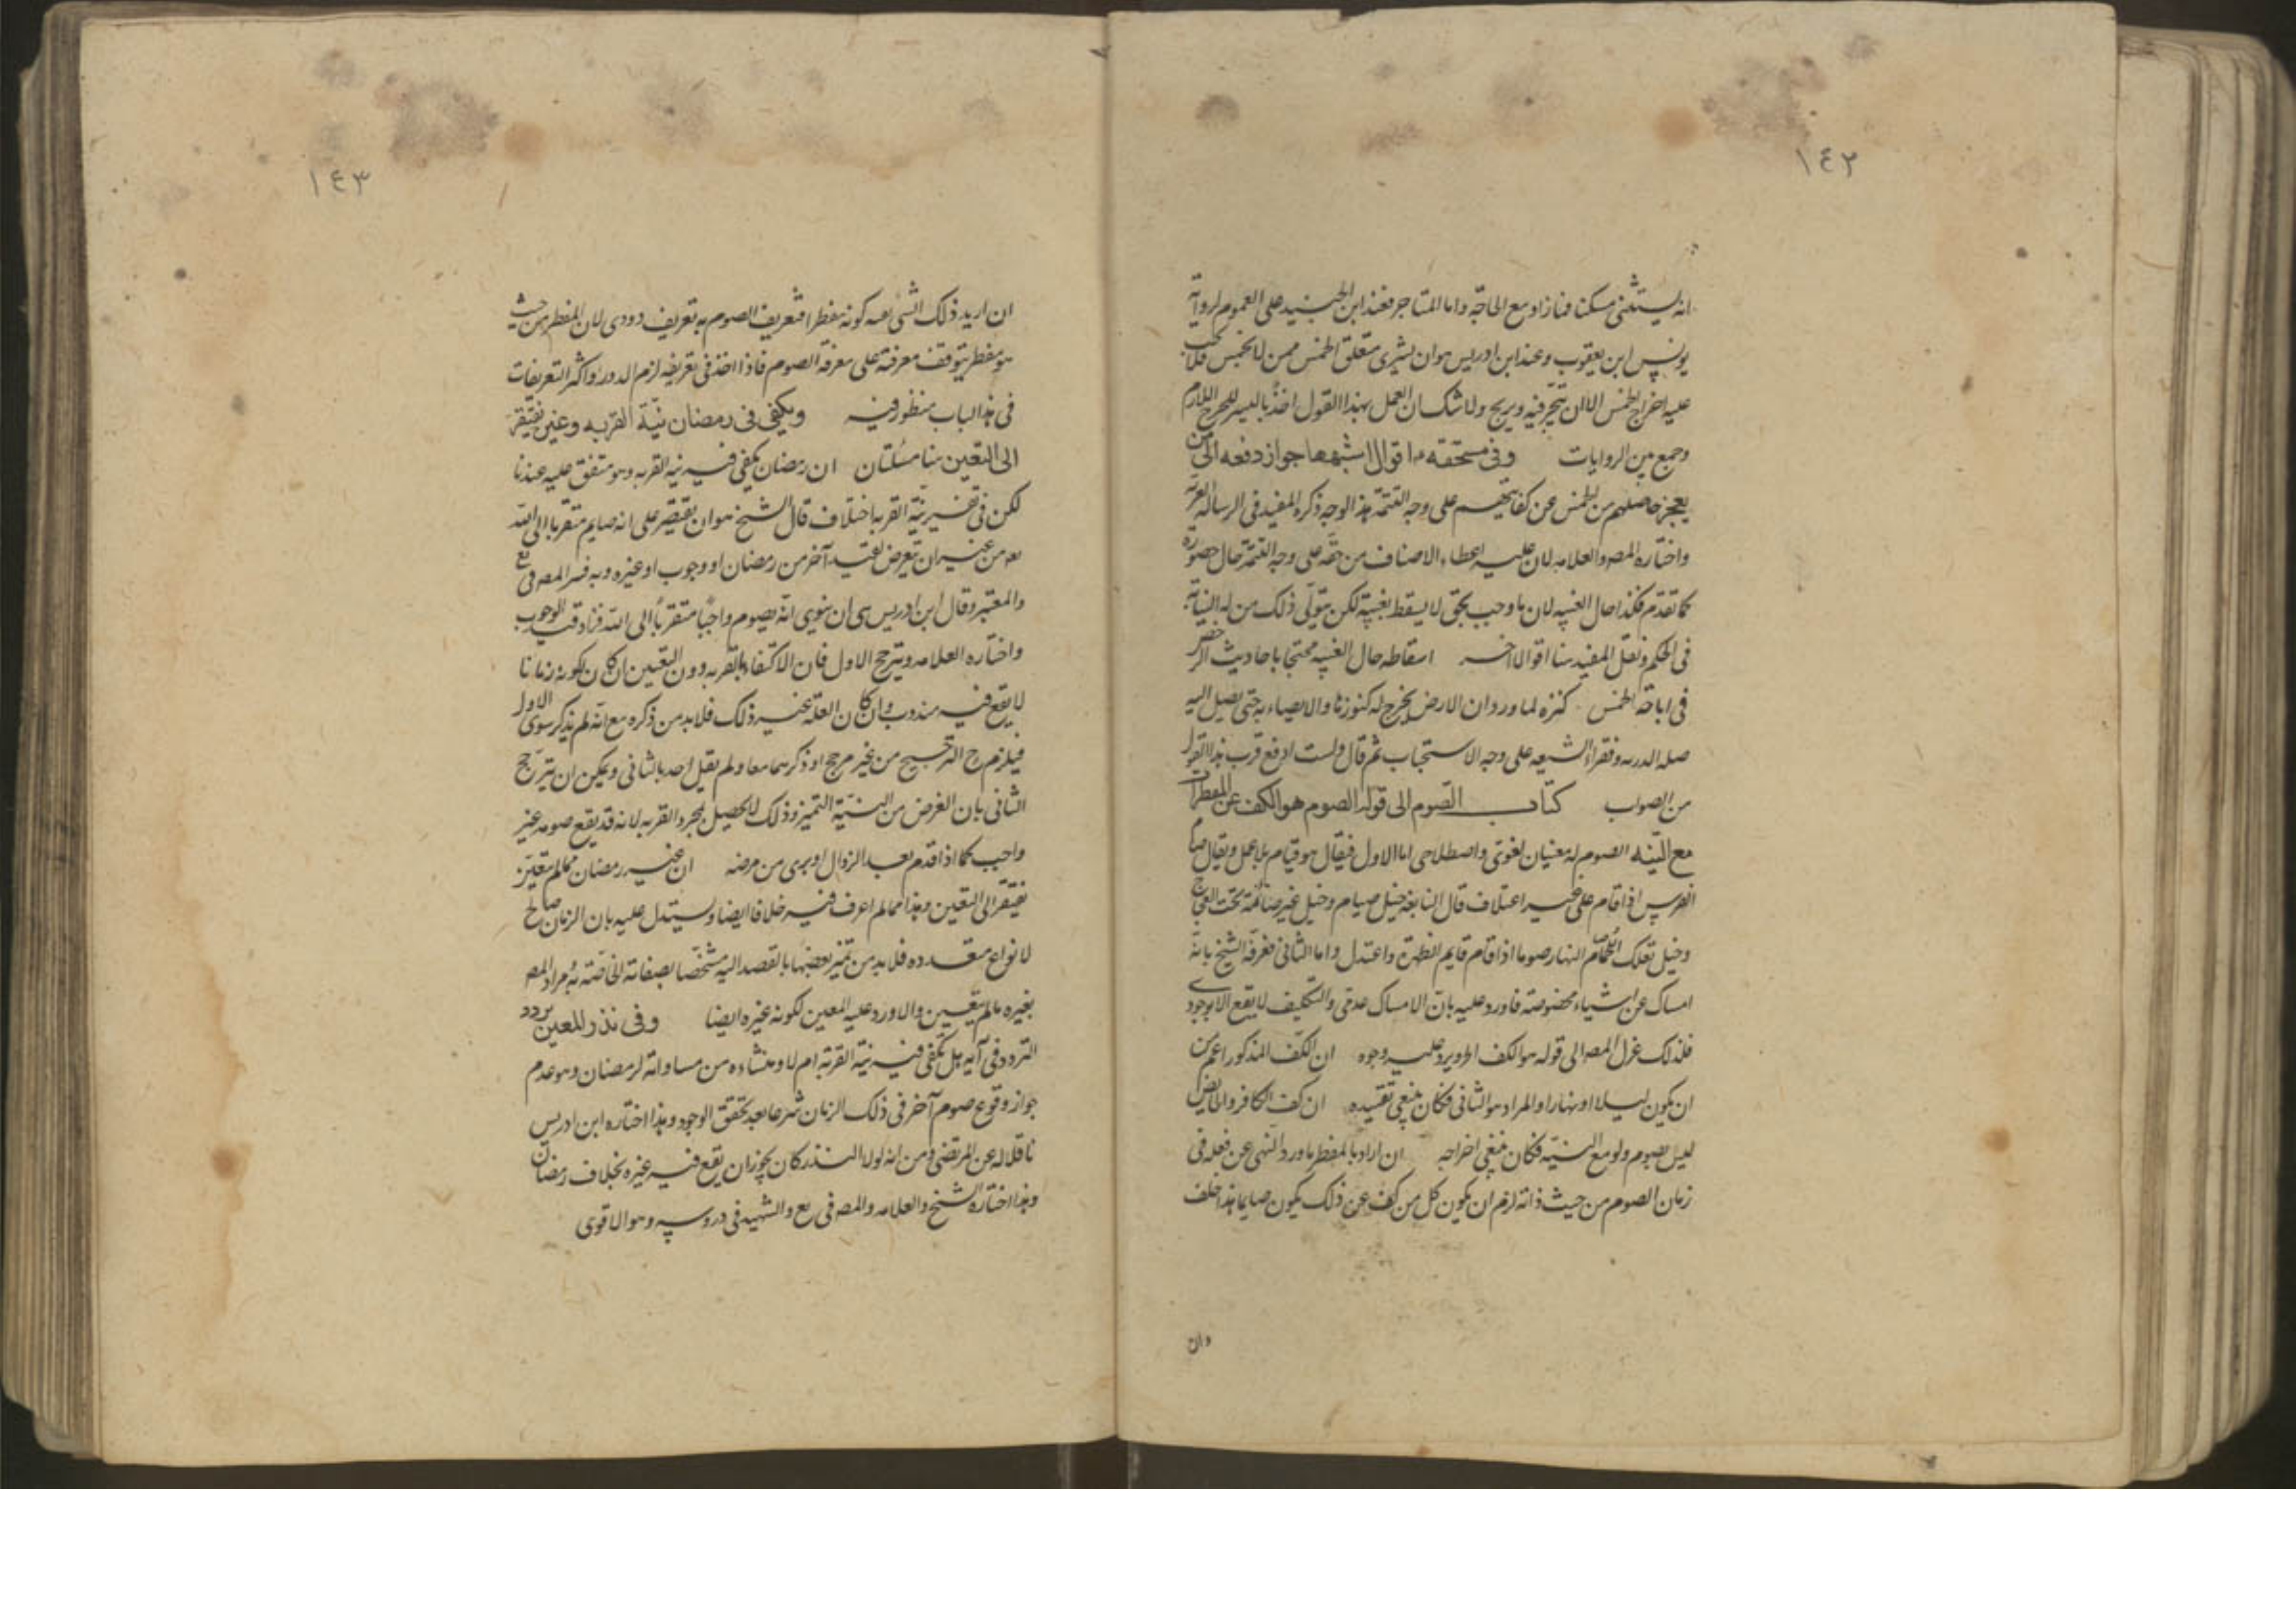 ١٤٢
انه يستثنى مسكنا فنازاد مع الحاجة واما المتاجر فعند ابن الجنيد على العموم لرواية
يونس ابن يعقوب وعند ابن ادريس هو ان يشترى متعلق الخمس ممن لا يخمس فلا يجب
عليه اخراج الخمس الا ان يتجر فيه ويربح ولا شك ان العمل بهذا القول اخذ بالعسر للحرج اللازم
وجمع بين الروايات وفى مستحقه اقوال اشبهها جواز دفعه الى من
يعجز حاصلهم من الخمس عن كفايتهم على وجه التتمة هذا الوجه ذكره المفيد فى الرسالة الغرية
واختاره المصه والعلامه لان عليه اعطاء الاصناف من حقه على وجه التتمة حال حضوره
كما تقدم فكذا حال الغيبه لان ما وجب بحق لا يسقط بغيبته لكن يتولى ذلك من له النيابة
فى الحكم ونقل المفيد هنا اقوالا اخر اسقاطه حال الغيبه محتجا باحاديث الرخص
فى اباحة الخمس كنزه لما ورد ان الارض يخرج له كنوزها والايصاء به حتى يصل اليه
صلة الذريه وفقراء الشيعه على وجه الاستحباب ثم قال ولست ادفع قرب هذا القول
من الصواب كتاب الصوم الى قوله الصوم هو الكف عن المفطرات
مع النيه الصوم له معنيان لغوى واصطلاحى اما الاول فيقال هو قيام بلا عمل ويقال صام
الفرس اذا قام على غير اعتلاف قال النابغه خيل صيام وخيل غير صائمة تحت العجاج
وخيل تعلك اللجما صام النهار صوما اذا قام قايم الظهيرة واعتدل واما الثانى فعرفه الشيخ بانه
امساك عن اشياء مخصوصة فاورد عليه بان الامساك عدمى والتكليف لا يقع الا بوجودى
فلذلك عدل المصه الى قوله هو الكف الخ ويرد عليه وجوه ان الكف المذكور اعم من
ان يكون ليلا او نهارا والمراد هو الثانى فكان ينبغى تقييده ان كف الكافر والحايض
ليس بصوم ولو مع النيه فكان ينبغى اخراجه ان اراد بالمفطر ما ورد النهى عن فعله فى
زمان الصوم من حيث ذاته لزم ان يكون كل من كف عن ذلك يكون صايما هذا خلف
وان
١٤٣
ان اريد ذلك الشئ بعد كونه مفطرا فتعريف الصوم به تعريف دورى لان المفطر من حيث
هو مفطر يتوقف معرفته على معرفة الصوم فاذا اخذ فى تعريفه لزم الدور واكثر التعريفات
فى هذا الباب منظور فيه ويكفى فى رمضان نيّة القربه وغيره يفتقر
الى التعيين هنا مسئلتان ان رمضان يكفى فيه نيه القربه وهو متفق عليه عندنا
لكن فى تفسير نيّة القربه اختلاف قال الشيخ هو ان يقتصر على انه صايم متقربا الى الله
من غير ان يتعرض لقيد آخر من رمضان او وجوب او غيره وبه فسر المصه فى يع
والمعتبر وقال ابن ادريس هى ان ينوى انه يصوم واجبًا متقربًا الى الله فزاد قيد الوجوب
واختاره العلامه ويترجح الاول فان الاكتفاء بالقربه دون التعيين ان كان لكونه زمانا
لا يقع فيه مندوب وان كان العلّة غير ذلك فلابد من ذكره مع انه لم يذكر سوى الاول
فيلزم ح الترجيح من غير مرجح او ذكرهما معا ولم يقل احد بالثانى ويمكن ان يترجح
الثانى بان الغرض من النيّة التميز وذلك لا يحصل بمجرد القربه لانه قد يقع صومه غير
واجب كما اذا قدم بعد الزوال او برى من مرضه ان غير رمضان مما لم يتعين
يفتقر الى التعيين وهذا مما لم اعرف فيه خلافا ايضا ويستدل عليه بان الزمان صالح
لانواع متعدده فلابد من تميز بعضها بالقصد اليه مشخصا بصفاته الخاصّة به مراد المصه
بغيره ما لم يتعيين والا ورد عليه المعين لكونه غيره ايضا وفى نذر المعين تردد
التردد فى انه هل يكفى فيه نيّة القربة ام لا ومنشاءه من مساواته لرمضان وهو عدم
جواز وقوع صوم آخر فى ذلك الزمان شرعا بعد تحقق الوجود وهذا اختاره ابن ادريس
ناقلا له عن المرتضى ومن انه لولا النذر كان يجوز ان يقع فيه غيره بخلاف رمضان
وهذا اختاره الشيخ والعلامه والمصه فى يع والشهيد فى دروسه وهو الاقوى